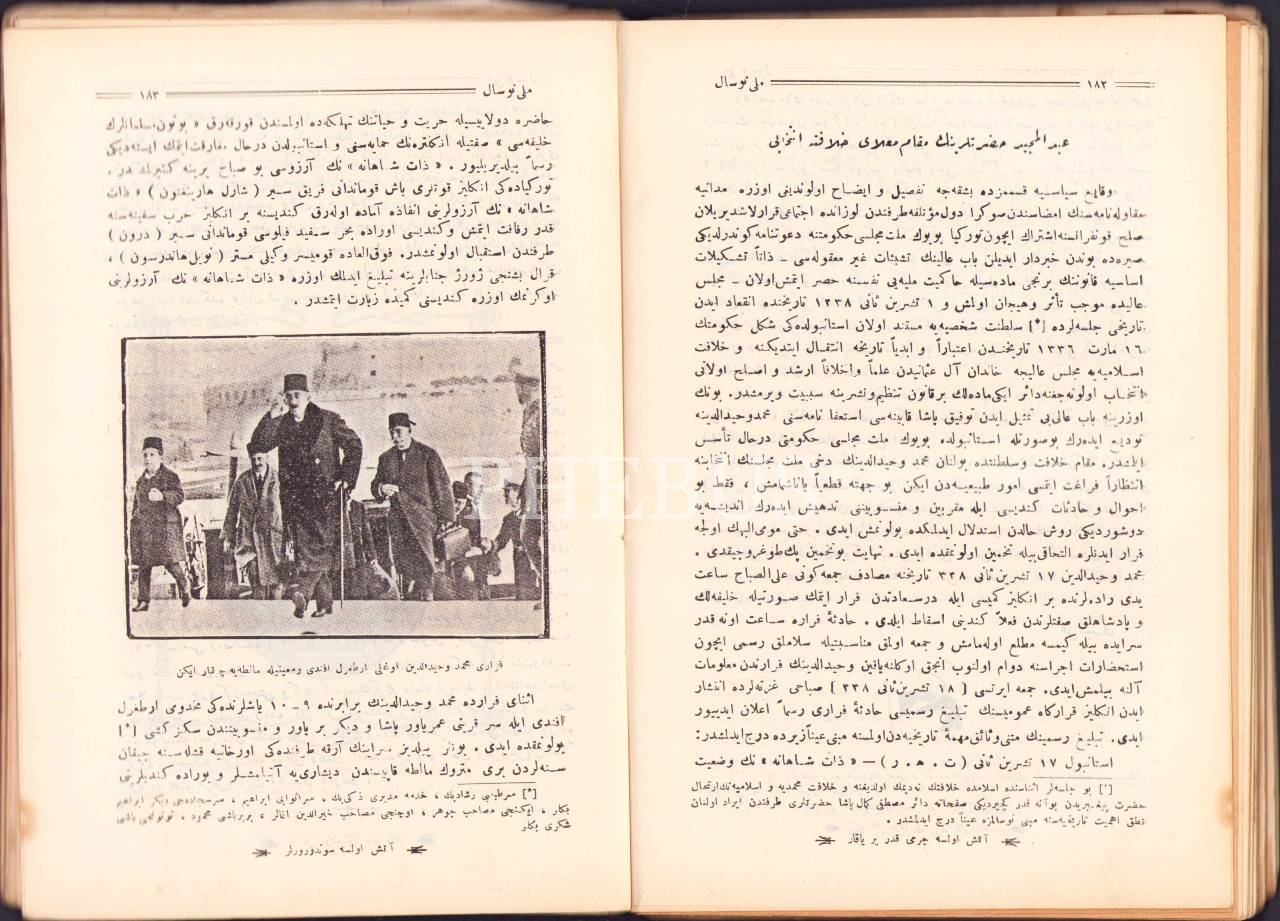 ملی نوسال ١٨٢
عبدالمجید حضرتلرینك مقام معلای خلافته انتخابی
وقایع سیاسیه قسمنزده بشقه‌جه تفصیل و ایضاح اولوندیغی اوزره مدانیه
مقاوله‌نامه‌سنك امضاسندن صوکرا دول مؤتلفه طرفندن لوزانده اجتماعی قرارلاشدیریلان
صلح قونفرانسنه اشتراك ایچون تورکیا بویوك ملت مجلسی حکومتنه دعوتنامه کوندرلدیکی
صیره‌ده بوندن خبردار ایدیلن باب عالینك تشبثات غیر معقوله‌سی ـ ذاتاً تشکیلات
اساسیه قانوننك برنجی ماده‌سیله حاکمیت ملیه‌یی نفسنه حصر ایتمش اولان ـ مجلس
عالیده موجب تأثر وهیجان اولمش و ١ تشرین ثانی ١٣٣٨ تاریخنده انعقاد ایدن
تاریخی جلسه‌لرده [*] سلطنت شخصیه‌یه مستند اولان استانبولده‌کی شکل حکومتك
١٦ مارت ١٣٣٦ تاریخندن اعتباراً و ابدیاً تاریخه انتقال ایتدیکنه و خلافت
اسلامیه‌یه مجلس عالیجه خاندان آل عثماندن علماً واخلاقاً ارشد و اصلح اولانی
انتخاب اولونه‌جغنه دائر ایکی ماده‌لك برقانون تنظیم ونشرینه سببیت ویرمشدر. بونك
اوزرینه باب عالی‌یی تمثیل ایدن توفیق پاشا قابینه‌سی استعفا نامه‌سنی محمد وحیدالدینه
تودیع ایده‌رك بوصورتله استانبولده بویوك ملت مجلسی حکومتی درحال تأسس
ایلمشدر. مقام خلافت وسلطنتده بولنان محمد وحیدالدینك دخی ملت مجلسنك انتخابنه
انتظاراً فراغت ایتمسی امور طبیعیه‌دن ایکن بو جهته قطعیاً یاناشمامش ، فقط بو
احوال و حادثات کندیسی ایله مقربین و منسوبیننی تدهیش ایده‌رك اندیشه‌یه
دوشوردیکی روش حالدن استدلال ایدلمکده بولونمش ایدی . حتی مومی‌الیهك اولجه
فرار ایدنلره التحاقی بیله تخمین اولونمقده ایدی . نهایت بوتخمین پك طوغرو چیقدی .
محمد وحیدالدین ١٧ تشرین ثانی ٣٣٨ تاریخنه مصادف جمعه کونی علی‌الصباح ساعت
یدی راده‌لرنده بر انکلیز کمیسی ایله درسعادتدن فرار ایتمك صورتیله خلیفه‌لك
و پادشاهلق صفتلرندن فعلاً کندینی اسقاط ایلدی . حادثهٔ فراره ساعت اونه قدر
سرایده بیله کیمسه مطلع اوله‌مامش و جمعه اولمق مناسبتیله سلاملق رسمی ایچون
استحضارات اجراسنه دوام اولنوب انجق اوکلنه یاقین وحیدالدینك فرارندن معلومات
آلنه بیلمش ایدی. جمعه ایرتسی [ ١٨ تشرین ثانی ٣٣٨ ] صباحی غزته‌لرده انتشار
ایدن انکلیز قرارکاه عمومیسنك تبلیغ رسمیسی حادثهٔ فراری رسماً اعلان ایدییور
ایدی. تبلیغ رسمینك متنی وثائق مهمهٔ تاریخیه‌دن اولمسنه مبنی عیناً زیرده درج ایدلمشدر :
استانبول ١٧ تشرین ثانی ( ت . ه . ر ) — « ذات شاهانه » نك وضعیت
[*] بو جلسه‌لر اثناسنده اسلامده خلافتك نه‌دیمك اولدیغنه و خلافت محمدیه و اسلامیه‌نك ارتحال
حضرت پیغمبریدن بوآنه قدر کچیردیکی صفحاته دائر مصطفی کمال پاشا حضرتلری طرفندن ایراد اولنان
نطق اهمیت تاریخیه‌سنه مبنی نوسالمزه عیناً درج ایدلمشدر .
آتش اولسه جرمی قدر یر یاقار
ملی نوسال ١٨٣
حاضره دولاییسیله حریت و حیاتنك تهلکه‌ده اولمسندن قورقارق « بوتون مسلمانلرك
خلیفه‌سی » صفتیله انکلتره‌نك حمایه‌سنی و استانبولدن درحال مفارقت ایتمك ایسته‌دیکی
رسماً بیلدیریلیور . « ذات شاهانه » نك آرزوسی بو صباح یرینه کتیرلمشدر .
تورکیاده‌کی انکلیز قوتلری باش قوماندانی فریق سیر ( شارل هارینغتون ) « ذات
شاهانه » نك آرزولرینی انفاذه آماده اوله‌رق کندیسنه بر انکلیز حرب سفینه‌سنه
قدر رفاقت ایتمش وکندیسی اوراده بحر سفید فیلوسی قوماندانی سیر ( دروق )
طرفندن استقبال اولونمشدر. فوق‌العاده قومیسر وکیلی مستر ( نویل هاندرسون ) ،
قرال بشنجی ژورژ جنابلرینه تبلیغ ایدلمك اوزره « ذات شاهانه » نك آرزولرینی
اوکرنمك اوزره کندیسنی کمیده زیارت ایتمشدر .
PHEBUS
فراری محمد وحیدالدین اوغلی ارطغرل افندی ومعیتیله مالطه‌یه چیقار ایکن
اثنای فرارده محمد وحیدالدینك برابرنده ٩ ـ ١٠ یاشلرنده‌کی مخدومی ارطغرل
افندی ایله سر قرینی عمر یاور پاشا و دیکر بر یاور و منسوبیننندن سکز کشی [*]
بولونمقده ایدی . بونلر ییلدیز سراینك آرقه طرفنده‌کی اورخانیه قشله‌سنه چیقان
سنه‌لردن بری متروك مالطه قاپیسندن دیشاری‌یه آتیلمشلر و بوراده کندیلرینی
[*] سرطبیبی رشادبك ، خدمه مدیری ذکی‌بك ، سراثوابی ابراهیم ، سرسجاده‌جی دیکر ابراهیم
بکلر ، ایکنجی مصاحب جوهر ، اوچنجی مصاحب خیرالدین اغالر ، بربرباشی محمود ، توتونجی باشی
شکری بکلر
آتش اولسه سوندورورلر